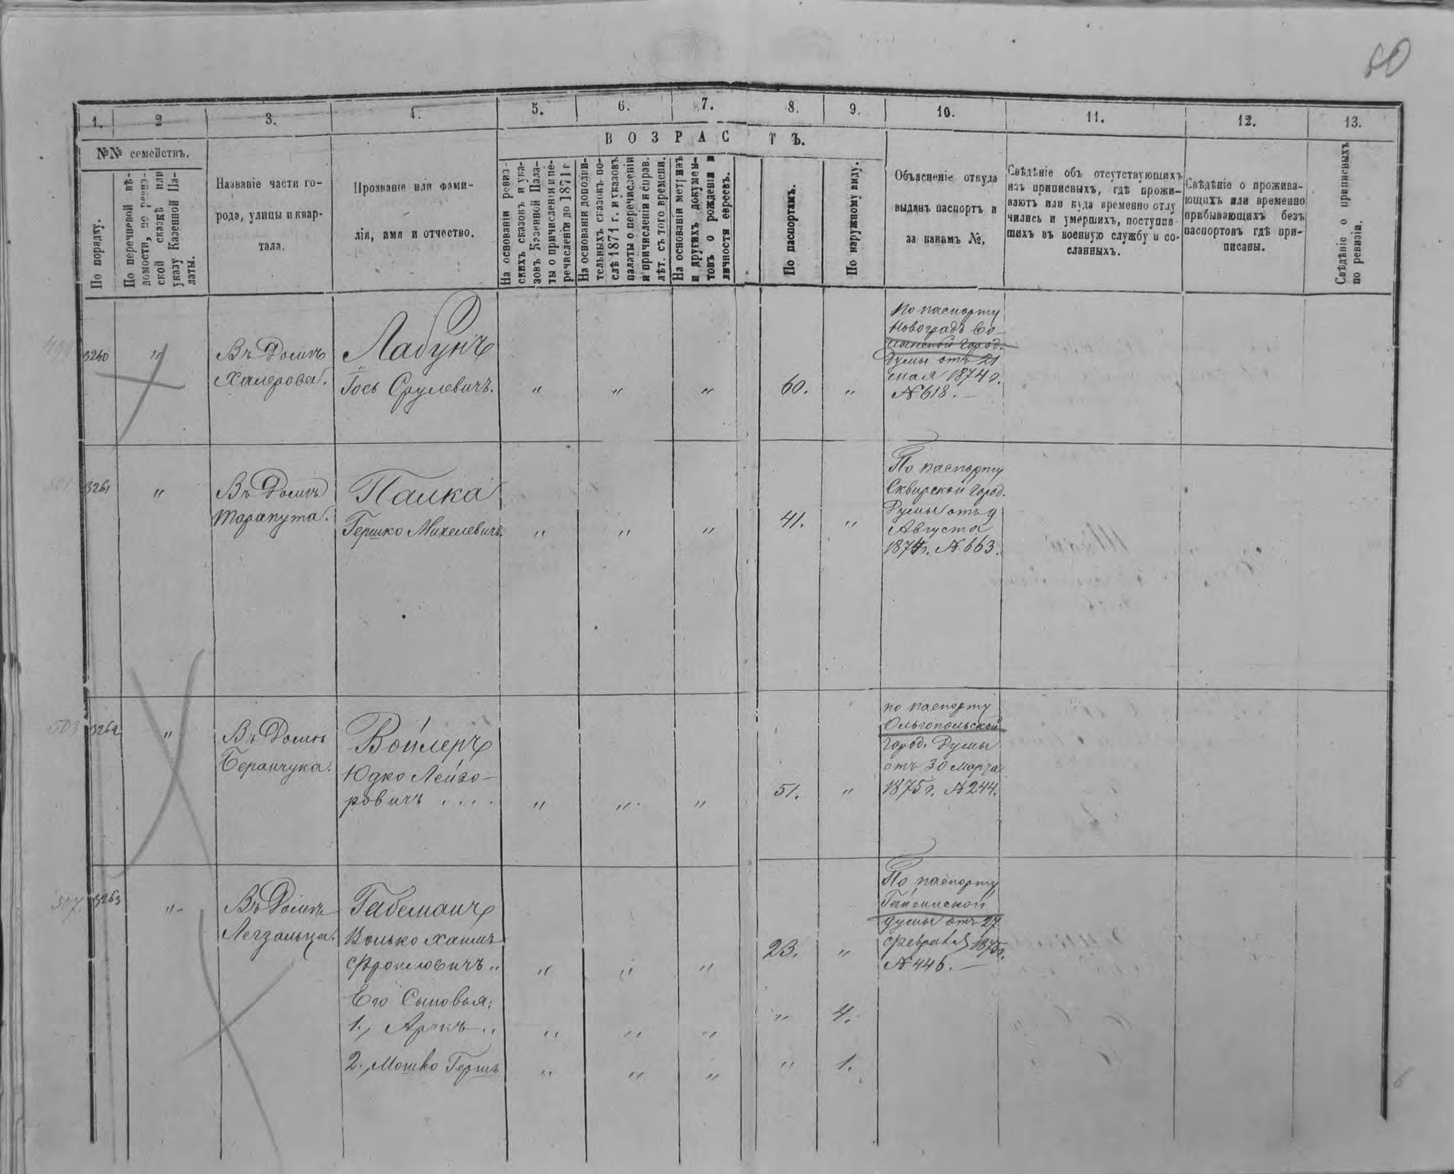 60
1.
2
3.
4.
5.
6.
7.
8.
9.
10.
11.
12.
13.
ВОЗРАСТЪ.
№№ семействъ.
По порядку.
По перечневой вѣ-
домости, по ревиз-
ской сказкѣ или
указу Казенной Па-
латы.
Названіе части го-
рода, улицы и квар-
тала.
Прозваніе или фами-
лія, имя и отчество.
На основаніи ревиз-
скихъ сказокъ и ука-
зовъ Казенной Пала-
ты о причисленіи и пе-
речисленіи до 1871 г
На основаніи дополни-
тельныхъ сказокъ по-
слѣ 1871 г. и указовъ
палаты о перечисленіи
и причисленіи и справ.
лѣт. съ того времени.
На основаніи метрикъ
и другихъ докумен-
товъ о рожденіи и
личности евреевъ.
По паспортамъ.
По наружному виду.
Объясненіе откуда
выданъ паспортъ и
за какимъ №,
Свѣдѣніе объ отсутствующихъ
изъ приписныхъ, гдѣ прожи-
ваютъ или куда временно отлу
чились и умершихъ, поступив
шихъ въ военную службу и со-
сланныхъ.
Свѣдѣніе о прожива-
ющихъ или временно
прибывающихъ безъ
паспортовъ гдѣ при-
писаны.
Свѣдѣніе о приписныхъ
по ревизіи.
3260
"
Въ Домѣ
Хамерова.
Лабунъ
Гось Срулевичъ.
"
"
"
60.
"
По паспорту
Новоградъ Во-
лынской Город.
Думы отъ 21
мая 1874 г.
№ 618.
3261
"
Въ Домѣ
Тарапута.
Палка
Гершко Михелевичъ.
"
"
"
41.
"
По паспорту
Сквирской Город.
Думы отъ 9
Августа
1874 г. № 663.
503
3262
"
Въ Домѣ
Беранчука.
Войлеръ
Юдко Лейзо-
ровичъ . . . .
"
"
"
51.
"
по паспорту
Ольгопольской
Город. Думы
отъ 30 Марта
1875 г. № 244.
507.
3263
"
Въ Домѣ
Легзальца.
Габеманъ
Волько Хаимъ
Фроимовичъ
"
"
"
23.
"
По паспорту
думы отъ 27
Февраля 1875 г.
№ 446.
Его Сыновья:
1., Аронъ
"
"
"
"
4.
2., Мошко Гершъ
"
"
"
"
1.